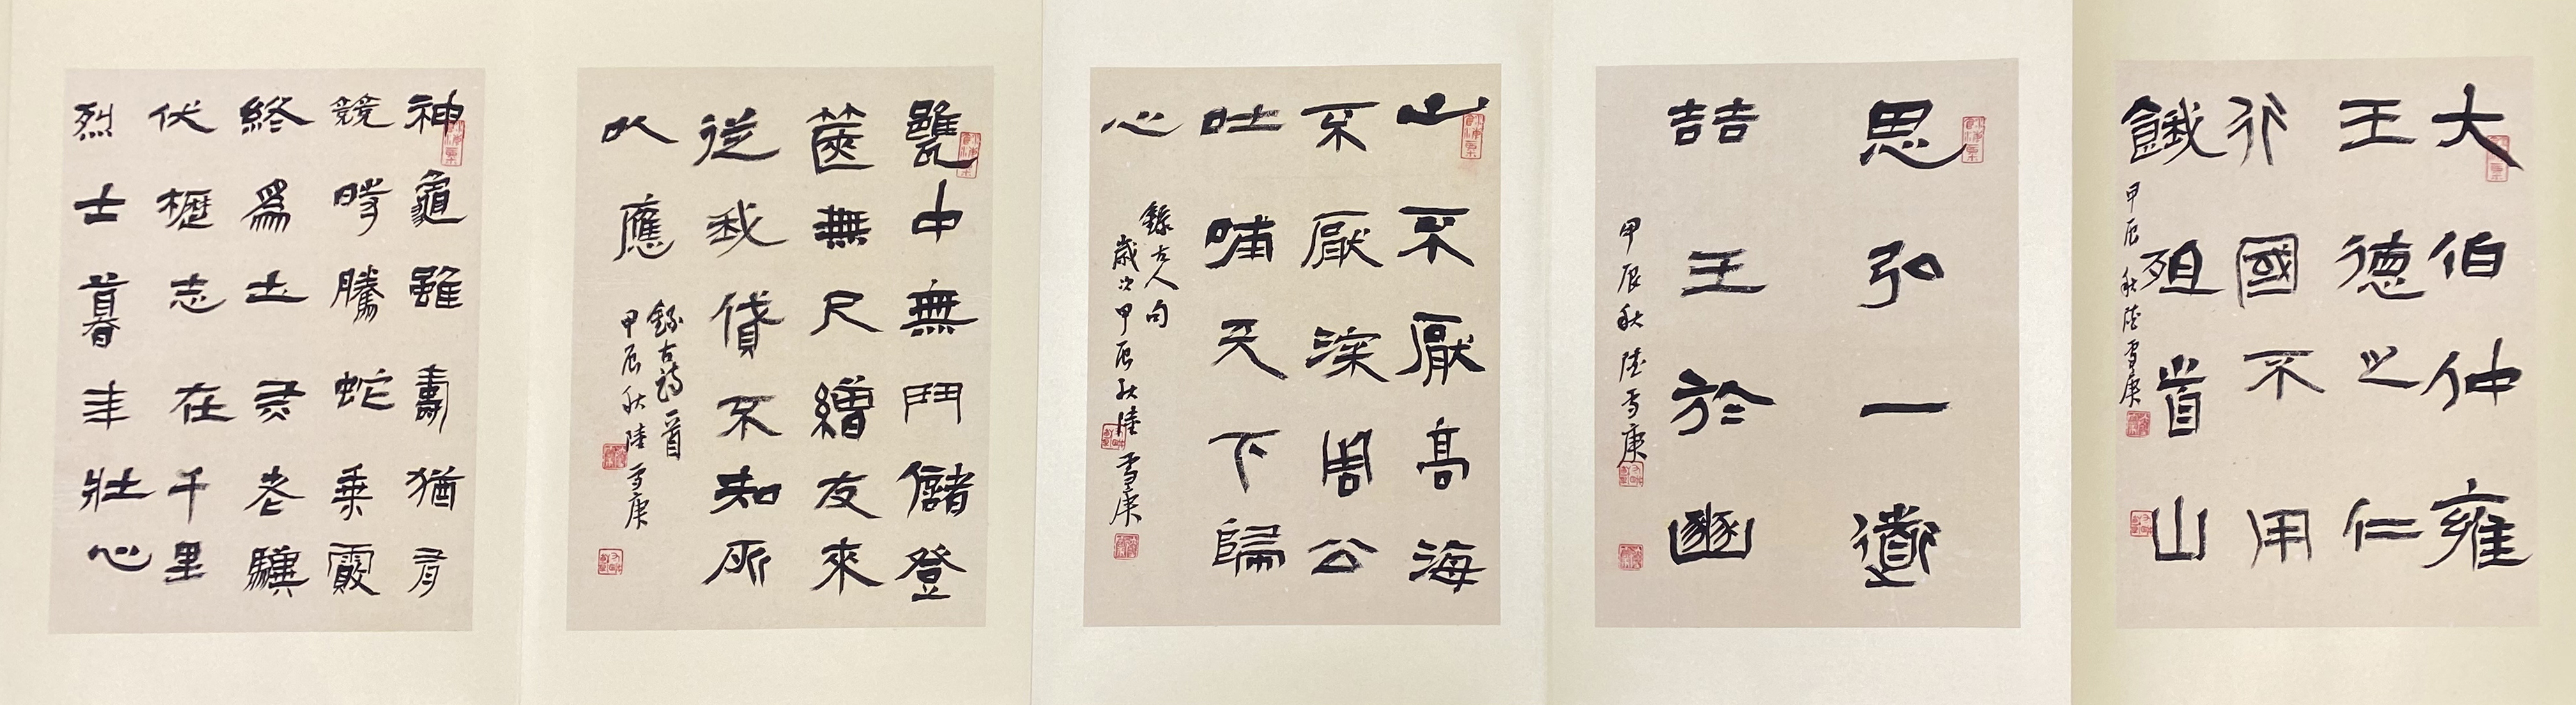 大伯仲雍
王德之仁
行國不用
餓殂首山
甲辰秋陸雪庚
思弘一道
喆王於豳
甲辰秋陸雪庚
山不厭高海
不厭深周公
吐哺天下歸
心
錄古人句
歲次甲辰秋陸雪庚
甕中無鬥儲登
篋無尺繒友來
從我貸不知所
以應
錄古詩一首
甲辰秋陸雪庚
神龜雖壽猶有
競時騰蛇乘霧
終爲土灰老驥
伏櫪志在千里
烈士暮年壯心